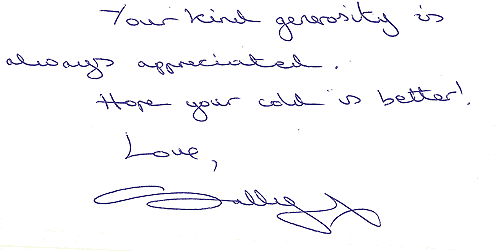 Your kind generosity is
always appreciated.
Hope your cold is better!
Love,
Sally x